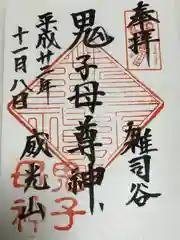 奉拝
雑司谷
鬼子母尊神
威光山
平成廿一年
十一月八日
鬼子
母神